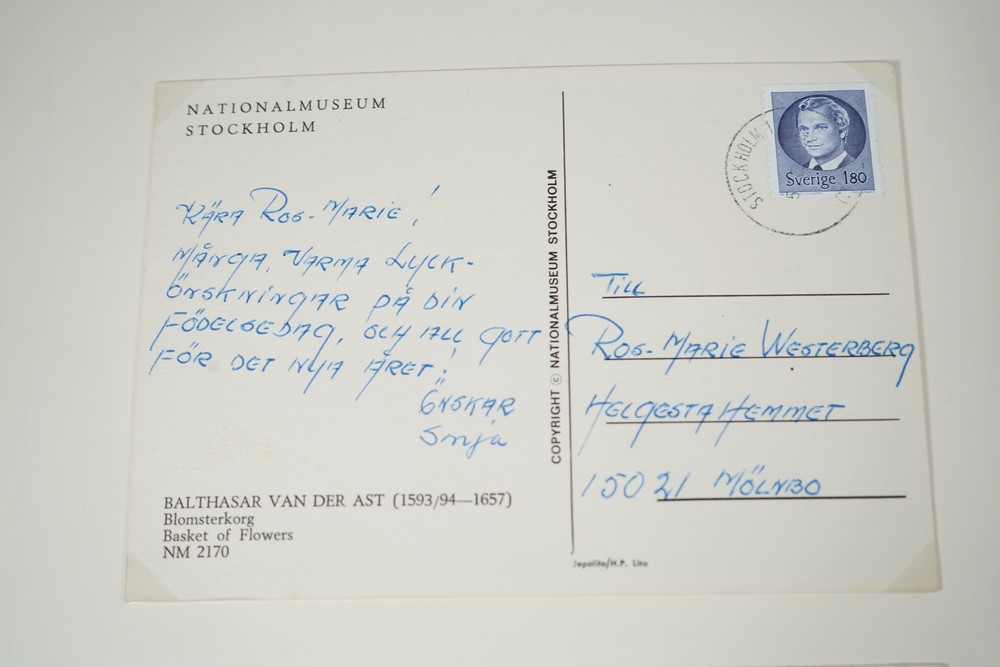 NATIONALMUSEUM
STOCKHOLM
KÄRA ROS-MARIE!
MÅNGA, VARMA LYCK-
ÖNSKNINGAR PÅ DIN
FÖDELSEDAG, OCH ALL GOTT
FÖR DET NYA ÅRET!
ÖNSKAR
BALTHASAR VAN DER AST (1593/94—1657)
Blomsterkorg
Basket of Flowers
NM 2170
COPYRIGHT © NATIONALMUSEUM STOCKHOLM
STOCKHOLM 1
Sverige 180
TILL
ROS-MARIE WESTERBERG
HELGESTAHEMMET
150 21 MÖLNBO
Jepolito/H.P. Lito